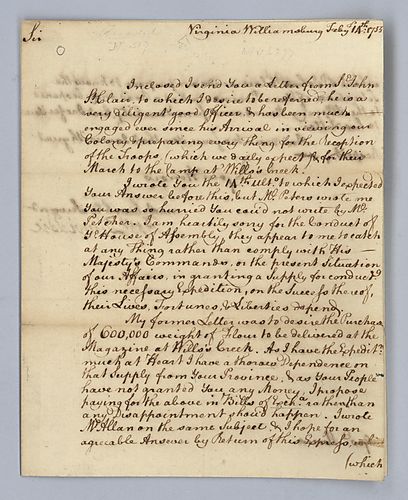 Sir
Virginia Williamsburg Feby 14th. 1755
Inclosed I send You a Letter from Sr. John
St. Clair, to which I desire to be referred, he is a
very diligent good Officer & has been much
engaged ever since his Arrival in viewing our
Colony & preparing every thing for the Reception
of the Troops, (which we daily expect) & for their
March to the Camp at Wills's Creek.
I wrote You the 14th Ulto. to which I expected
Your Answer before this, but Mr. Peters wrote me
You was so hurried You could not write by Mr.
I am heartily sorry for the Conduct of
Yr. House of Assembly, they appear to me to catch
at any Thing rather than comply with His
Majesty's Commands, or the present Situation
of our Affairs, in granting a Supply for conductg.
this necessary Expedition, on the Success thereof,
their Lives, Fortunes, & Liberties depend.
My former Letter was to desire the Purchase
of 600,000 weight of Flour to be delivered at the
Magazine at Wills's Creek. As I have the Expeditn.
much at Heart I have a thorow Dependence on
that Supply from Your Province, & as Your People
have not granted You any Money, I propose
paying for the above in Bills of Excha. rather than
any Disappointment shou'd happen. I wrote
Mr. Allan on the same Subject & I hope for an
agreable Answer by Return of this Express
(which